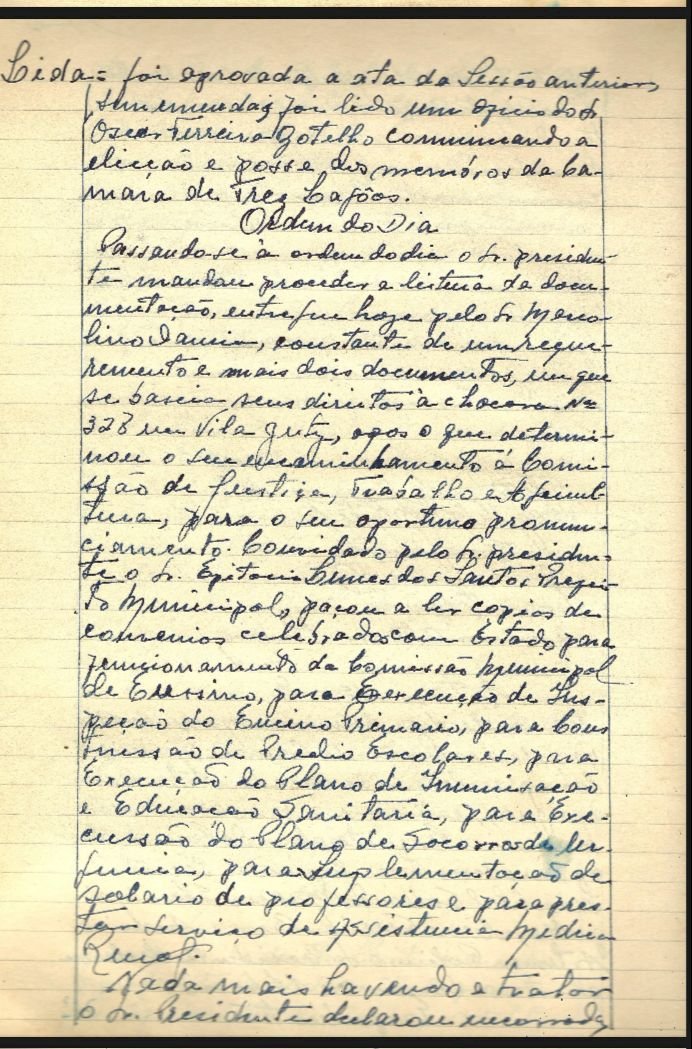 Lida = foi aprovada a ata da Sessão anterior,
sem emendas, foi lido um oficio do Sr
Oscar Ferreira Botelho communicando a
eleição e posse dos membros da Ca-
mara de Trez Lagôas.
Ordem do Dia
Passando-se à ordem do dia o Sr. presiden-
te mandou proceder a leitura da docu-
mentação, entregue hoje pelo Sr
lino, constante de um reque-
rimento e mais dois documentos, em que
se baseia seus direitos à chacara Nº
328 na Vila, apos o que determi-
nou o seu encaminhamento á Comi-
ssão de Justiça, Trabalho e Agricul-
tura, para o seu oportuno pronun-
ciamento. Convidado pelo Sr. presiden-
te o Sr. Epitacio Lemes dos Santos Prefei-
to Municipal, paçou a ler copias de
convenios celebrados com Estado para
funcionamento da Comissão Municipal
de Ensino, para Execução de Ins-
peção do Encino Primario, para Cons
trussão de Predio Escolares, para
Execução do Plano de Imunisação
e Educação Sanitaria, para Exe-
cussão do Plano de Socorro de Ur-
gencia, para Suplementação de
salario de professores e para pres-
tar serviço de Assistencia Medica
Rural.
Nada mais havendo a tratar
o Sr. Presidente declarou encerrada